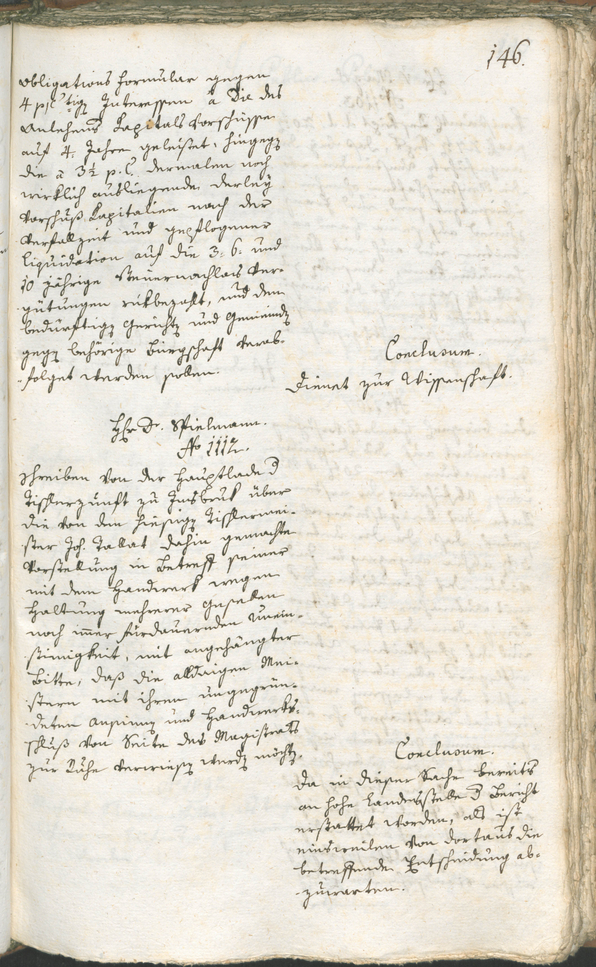 146.
obligations Formular gegen
4 p/C tige Interessen à Die des
Anlehens Kapitals Vorschüsse
auf 4. Jahre geleistet, hingegen
die à 3½ p. C. dermalen noch
wirklich ausliegende derley
Vorschuß Kapitalien nach der
Verfallzeit und gepflogener
Liquidation auf die 3: 6: und
10 jährige Steuernachlas Ver-
gütungen rükbezalt, und dem
bedürftigen Gerichts und Gemeinds
gegen behörige Bürgschaft verab-
folget werden sollen.
Conclusum.
Dienet zur Wissenschaft.
Hr Dr. Spielmann.
No 1112.
Schreiben von der Hauptlade d
Tischlerzunft zu Insbruk über
die von dem hiesigen Tischlermei-
ster Joh. Tallat dahin gemachte
Vorstellung in Betreff seiner
mit dem Handwerk wegen
Haltung mehrerer Gesellen
noch imer fürdauernden Unein-
stimigkeit, mit angehängter
Bitte, daß die alldaigen Mei-
stern mit ihrem ungegrün-
deten und Handwerks-
schluß von Seite des Magistrats
zur Ruhe verwiesen werden möchte.
Conclusum.
Da in dieser Sache bereits
an hohe Landesstelle d Bericht
erstattet worden, als ist
einsweilen von dortaus die
betreffende Entscheidung ab-
zuwarten.